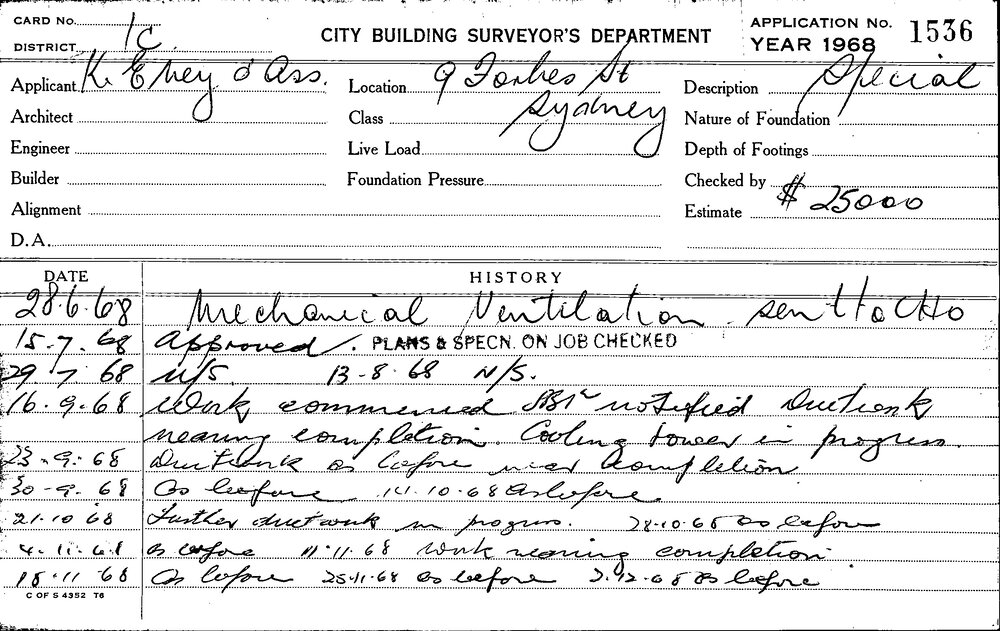 CARD No.
DISTRICT 1C
CITY BUILDING SURVEYOR'S DEPARTMENT
APPLICATION No. 1536
YEAR 1968
Applicant K. Eney & Ass. Location 9 Forbes St Description Special
Architect Class Sydney Nature of Foundation
Engineer Live Load Depth of Footings
Builder Foundation Pressure Checked by
Alignment Estimate $ 25000
D.A.
DATE HISTORY
28.6.68 Mechanical Ventilation sent to CHO
15.7.68 Approved. PLANS & SPECN. ON JOB CHECKED
29 7 68 N/S. 13-8-68 N/S.
16.9.68 Work commenced notified Ductwork
nearing completion. Cooling tower in progress.
23.9.68 Ductwork as before near completion
30-9.68 As before 14.10.68 As before
21.10 68 Further ductwork in progress. 28.10.68 as before
4.11.68 as before 11.11.68 work nearing completion
18.11 68 As before 25.11.68 as before 2.12.68 as before
C OF S 4352 T6